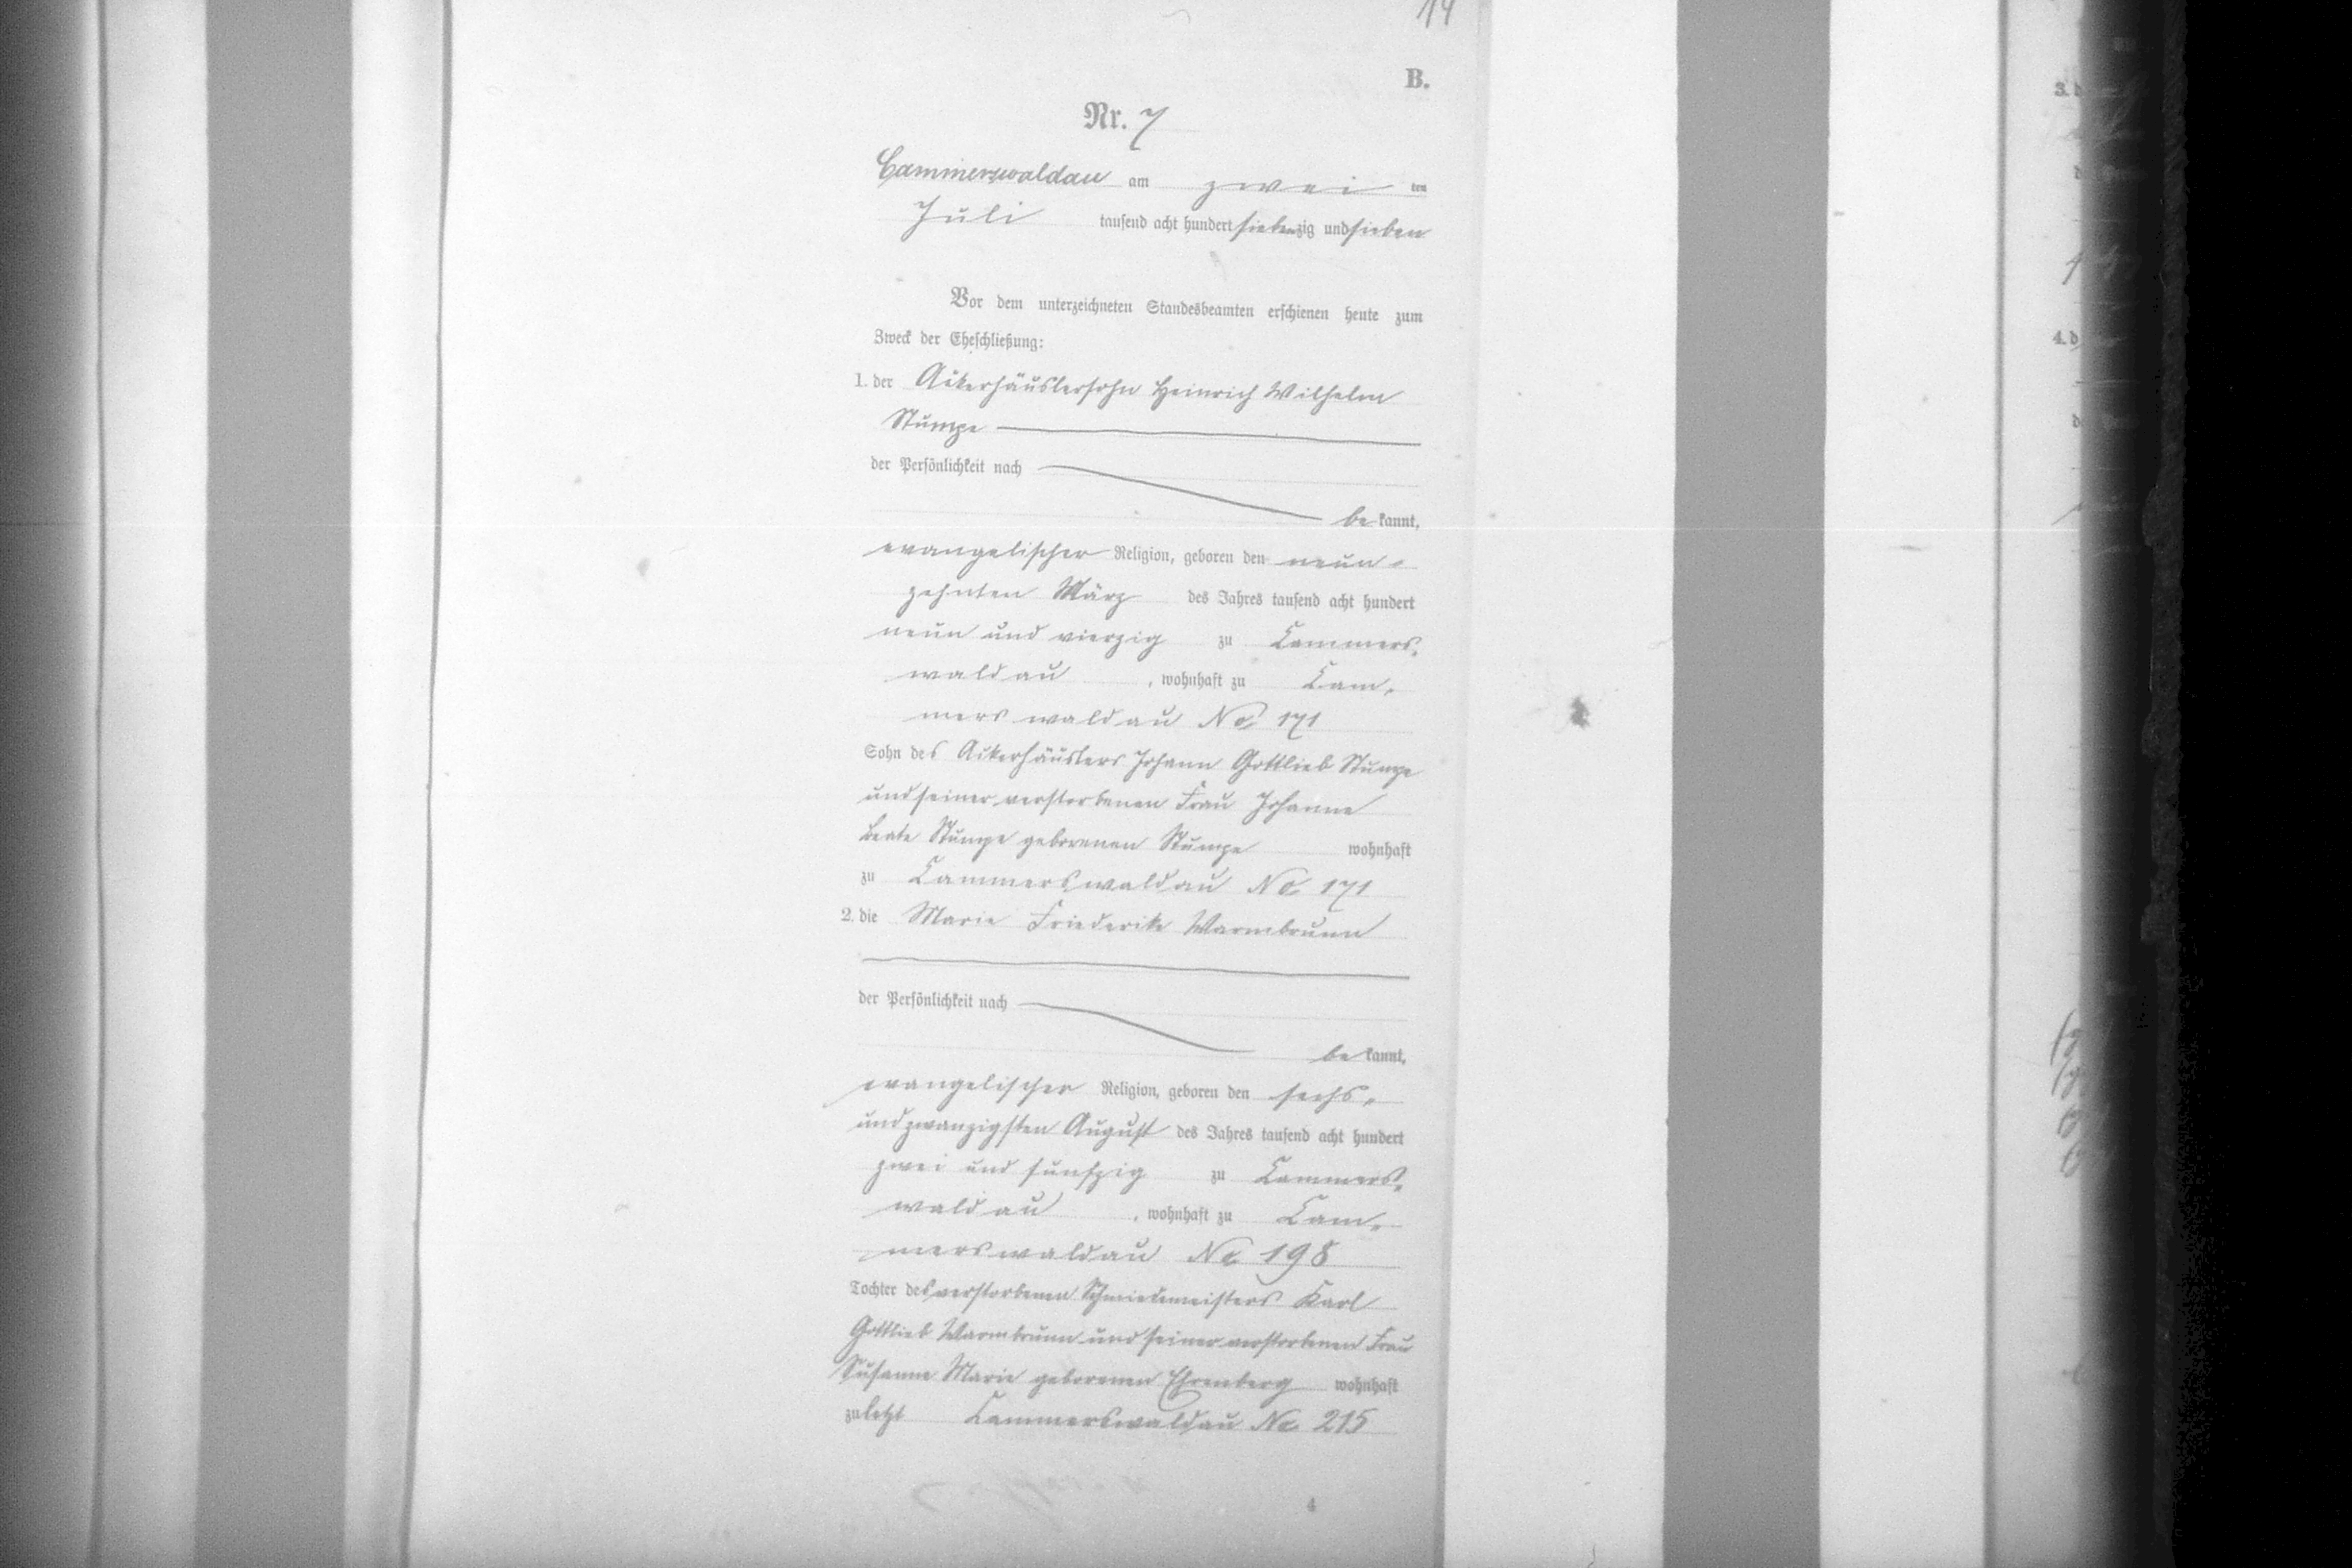 14
B.
Nr. 7
Cammerswaldau am zwei ten
Juli tausend acht hundert siebenzig und sieben
Vor dem unterzeichneten Standesbeamten erschienen heute zum
Zweck der Eheschließung:
1. der Ackerhäuslersohn Heinrich Wilhelm
Stumpe
der Persönlichkeit nach
be kannt,
evangelischer Religion, geboren den neun-
zehnten März des Jahres tausend acht hundert
neun und vierzig zu Cammers-
waldau, wohnhaft zu Cam-
merswaldau No 171
Sohn des Ackerhäuslers Johann Gottlieb Stumpe
und seiner verstorbenen Frau Johanne
Beate Stumpe geborenen Stumpe wohnhaft
zu Cammerswaldau No 171
2. die Marie Friederike Warmbrunn
der Persönlichkeit nach
be kannt,
evangelischer Religion, geboren den sechs-
und zwanzigsten August des Jahres tausend acht hundert
zwei und fünfzig zu Cammers-
waldau, wohnhaft zu Cam-
merswaldau No 198
Tochter des verstorbenen Schmiedemeisters Karl
Gottlieb Warmbrunn und seiner verstorbenen Frau
Susanne Marie geborenen Ehrenberg wohnhaft
zuletzt Cammerswaldau No 215
4
3. d
4. d